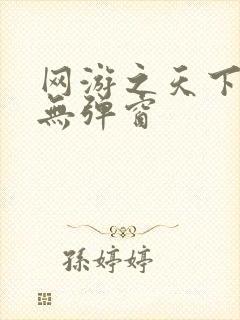 网游之天下
無弹窗
孫婷婷